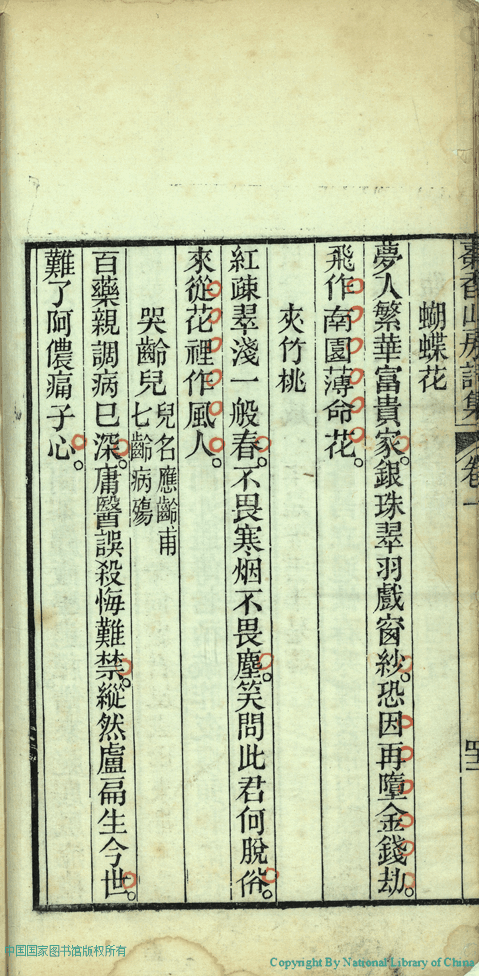 香山房詩集 卷一
蝴蝶花
夢人繁華富貴家。銀珠翠羽戲窗紗。恐因再墮金錢劫。
飛作南園薄命花。
夾竹桃
紅疎翠淺一般春。不畏寒烟不畏塵。笑問此君何脫俗。
來從花裡作風人。
哭齡兒 兒名應齡甫
七齡病殤
百藥親調病已深。庸醫誤殺悔難禁。縱然盧扁生今世。
難了阿儂痛子心。
中国国家图书馆版权所有
Copyright By National Library of China